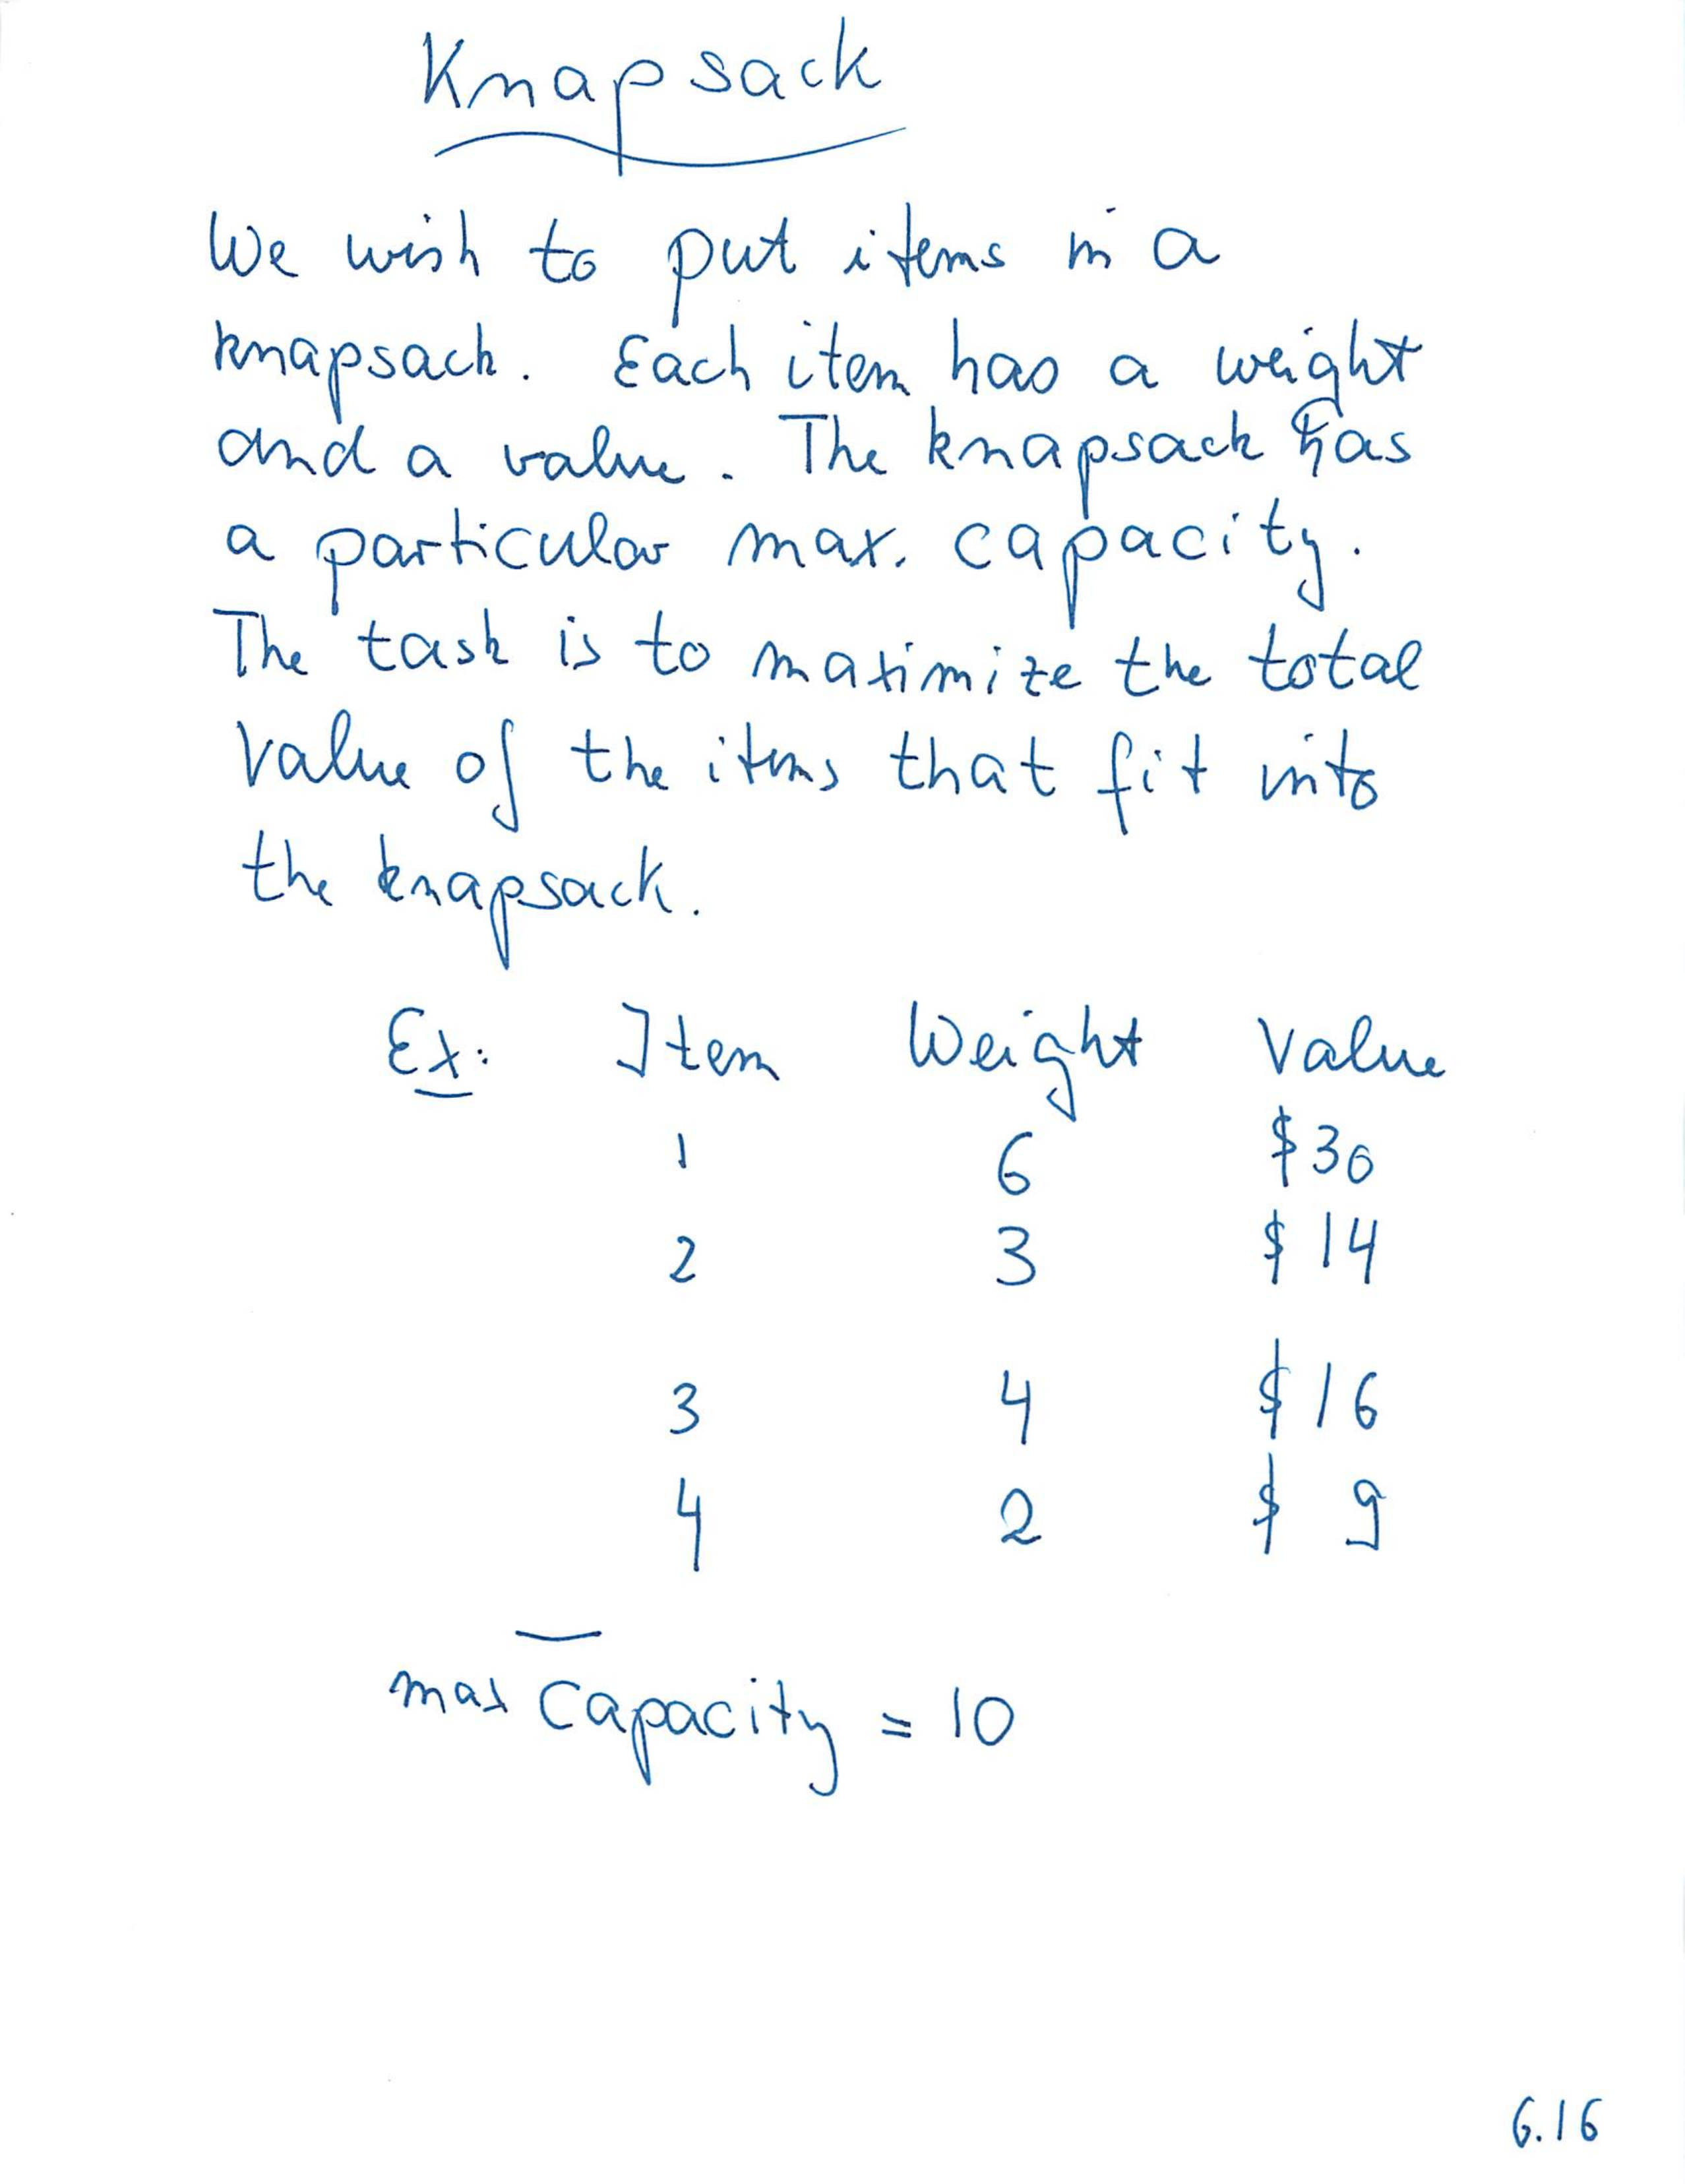 Knapsack
We wish to put items in a
knapsack. Each item has a weight
and a value. The knapsack has
a particular max. capacity.
The task is to maximize the total
value of the items that fit into
the knapsack.
Ex: Item Weight Value
1 6 $30
2 3 $14
3 4 $16
4 2 $ 9
max Capacity = 10
6.16